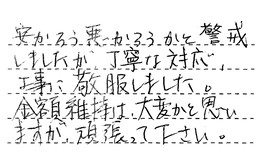 安かろう悪かろうかと警戒
しましたが、丁寧な対応、
工事に敬服しました。
金額維持は、大変かと思い
ますが、頑張って下さい。